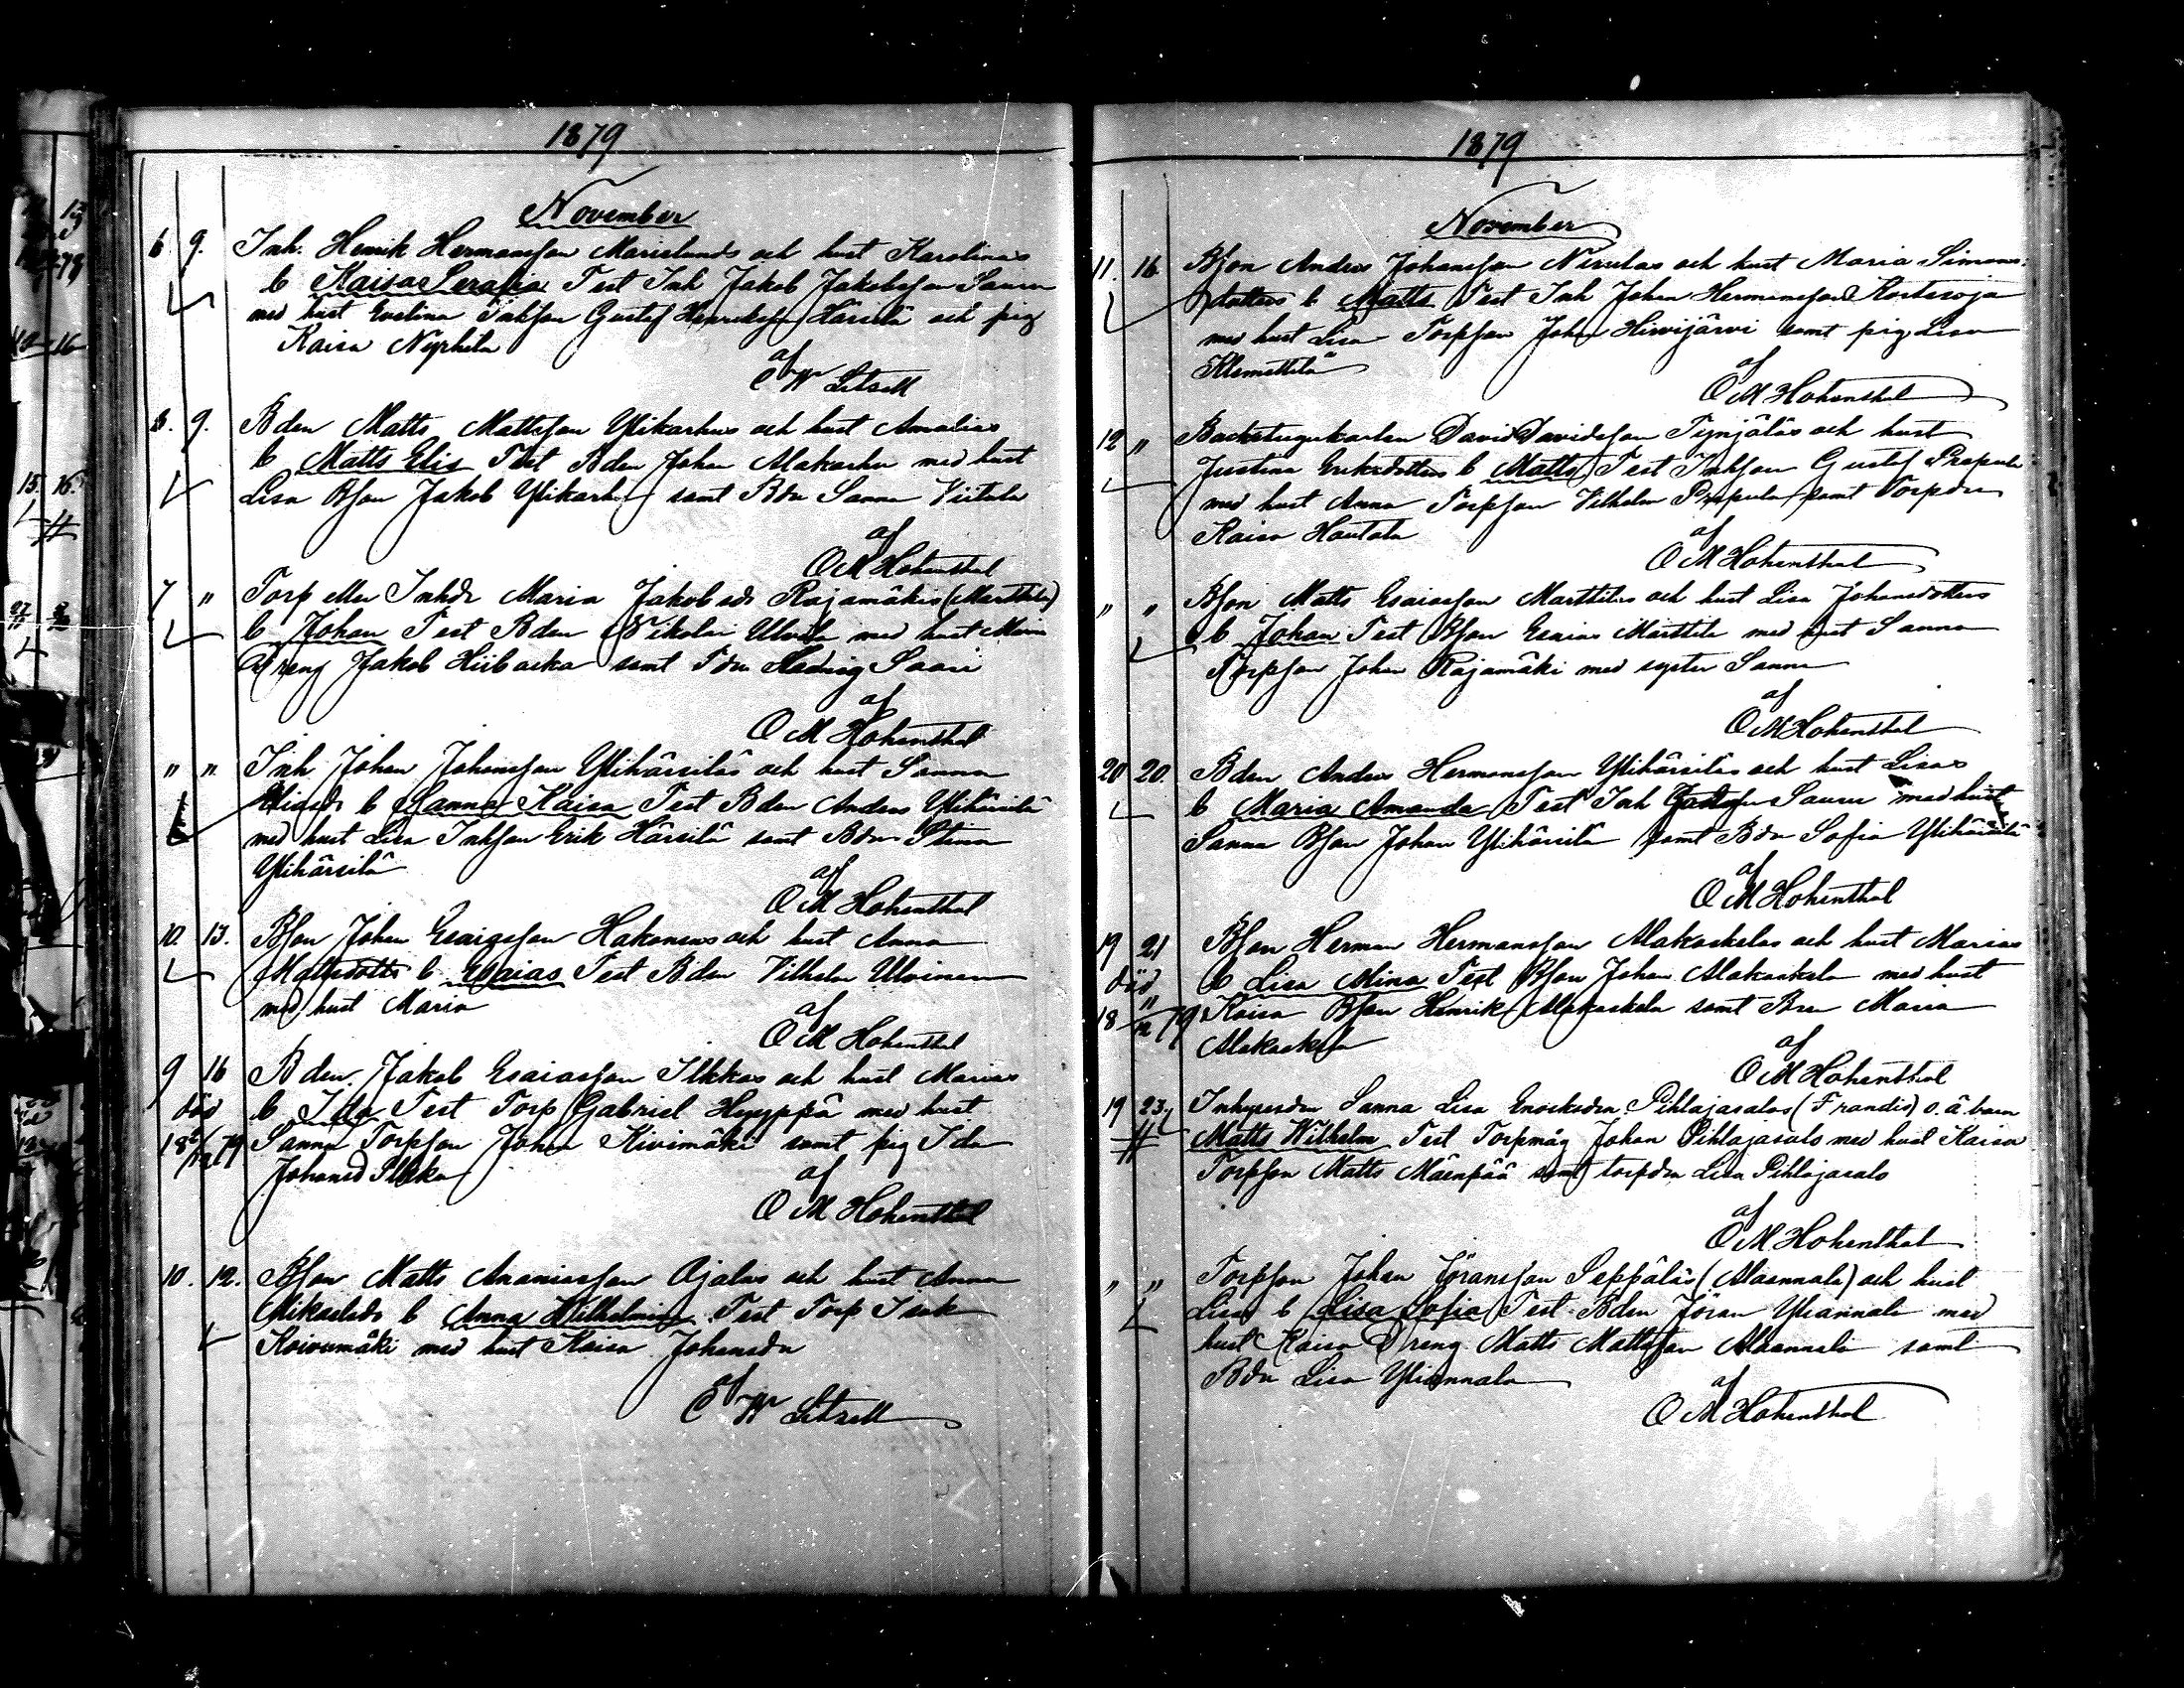 1879
November
6. 9. Inh. Henrik Hermansson Marielunds och hust Karolinas
b Kaisa Serafia Test Inh Jakob Jakobsson Sauru
med hust Evelina Inhson Gustaf Henriksson Härsilä och pig
Kaisa Nyrhila
af
C W Litzell
8. 9. Bden Matts Mattsson Ylikarhus och hust Amalias
b Matts Elis Test Bden Johan Alakarhu med hust
Lisa Bson Jakob Ylikarhu samt Bdn Sanna Viitala
af
O M Hohenthal
7 " Torp eller Inhdr Maria Jakobsdr Rajamäkis (Marttila)
b Johan Test Bden Nikolai Ulvila med hust Maria
Dreng Jakob Hiibacka samt Tdn Hedvig Saari
af
O M Hohenthal
" " Inh Johan Johansson Ylihärsiläs och hust Sanna
Eliaedr b Sanna Kaisa Test Bden Anders Ylihärsilä
med hust Lisa Inhson Erik Härsilä samt Bdn Stina
Ylihärsilä
af
O M Hohenthal
10. 13. Bson Johan Esaiasson Hakonens och hust Anna
Mattsdotts b Esaias Test Bden Vilhelm Ulvinen
med hust Maria
af
O M Hohenthal
9 16 Bden Jakob Esaiasson Ilkkas och hust Marias
död b Ida Test Torp Gabriel Hyyppä med hust
18 6/12 79 Sanna Torpson Johan Kivimäki samt pig Ida
Johansd Ilkka
af
O M Hohenthal
10. 12. Bson Matts Ananiasson Ojalas och hust Anna
Mikaelsdr b Anna Wilhelmina Test Torp Isak
Koivumäki med hust Kaisa Johansdn
af
C W Litzell
1879
November
11. 16. Bson Anders Johansson Nirulas och hust Maria Simons
dotters b Matts Test Inh Johan Hermansson Kortesoja
med hust Lisa Torpson Johan Hirvijärvi samt pig Lisa
Klemettilä
af
O M Hohenthal
12 " Backstugukarlen David Davidsson Tynjäläs och hust
Justina Eriksdotters b Matts Test Inhson Gustaf Prepula
med hust Anna Torpson Vilhelm Prepula samt Torpdn
Kaisa Hautala
af
O M Hohenthal
" " Bson Matts Esaiasson Marttilas och hust Lisa Johansdotters
b Johan Test Bson Esaias Marttila med hust Sanna
Torpson Johan Rajamäki med syster Sanna
af
O M Hohenthal
20 20. Bden Anders Hermansson Ylihärsiläs och hust Lisas
b Maria Amanda Test Inh Gustaf Sauru med hust
Sanna Bson Johan Ylihärsilä samt Bdn Sofia Ylihärsilä
af
O M Hohenthal
19 21 Bson Herman Hermansson Alakoskelas och hust Marias
död b Lisa Mina Test Bson Johan Alakoskela med hust
18 "/12 79 Kaisa Bson Henrik Alakoskela samt Bdn Maria
Alakoskela
af
O M Hohenthal
19 23 Inhysesdn Sanna Lisa Enoksdrs Pihlajasalos (Frandis) o. ä barn
Matts Wilhelm Test Torpmåg Johan Pihlajasalo med hust Kaisa
Torpson Matts Mäenpää samt torpdn Lisa Pihlajasalo
af
O M Hohenthal
" " Torpson Johan Jöransson Seppäläs (Alaannala) och hust
Lisas b Lisa Sofia Test Bden Jöran Yliannala med
hust Kaisa Dreng Matts Mattsson Alaannala samt
Bdn Lisa Yliannala
af
O M Hohenthal